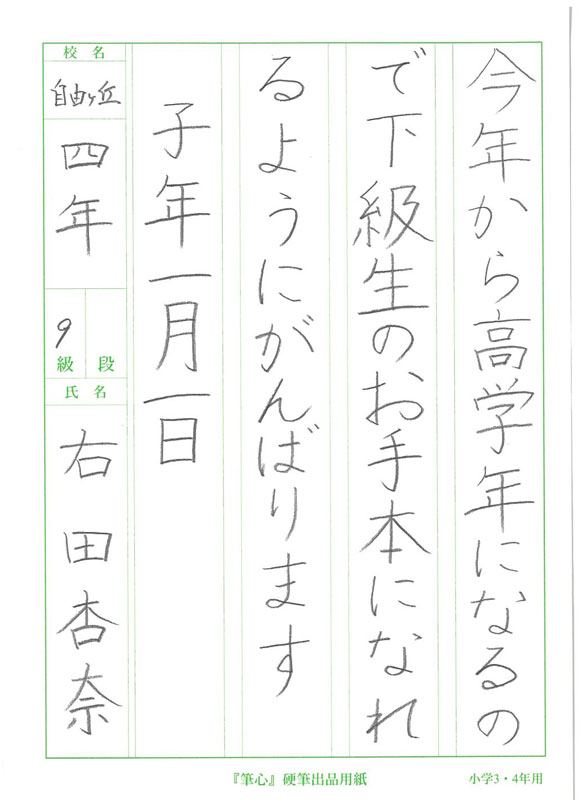 今年から高学年になるの
で下級生のお手本になれ
るようにがんばります
子年一月一日
校名
自由ヶ丘
四年
9
級
段
氏名
右田杏奈
『筆心』硬筆出品用紙
小学3・4年用